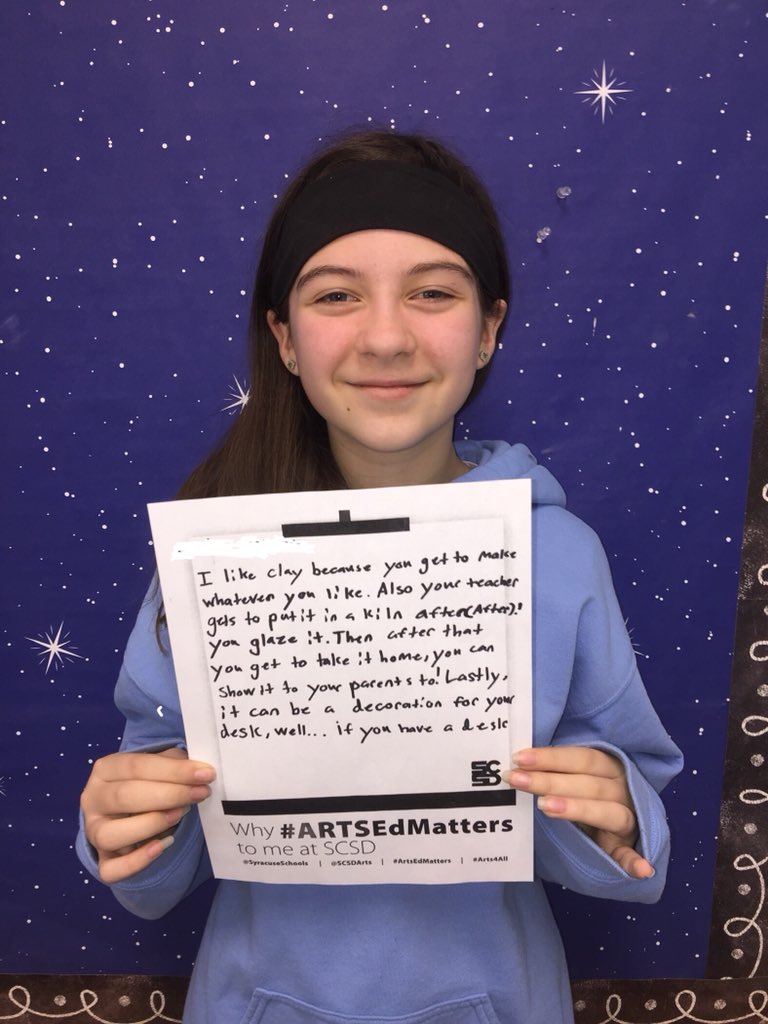 I like clay because you get to make
whatever you like. Also your teacher
gets to put it in a kiln after(After).!
you glaze it. Then after that
you get to take it home, you can
show it to your parents to! Lastly,
it can be a decoration for your
desk, well... if you have a desk
SC
SD
Why #ARTSEdMatters
to me at SCSD
@SyracuseSchools | @SCSDArts | #ArtsEdMatters | #Arts4All